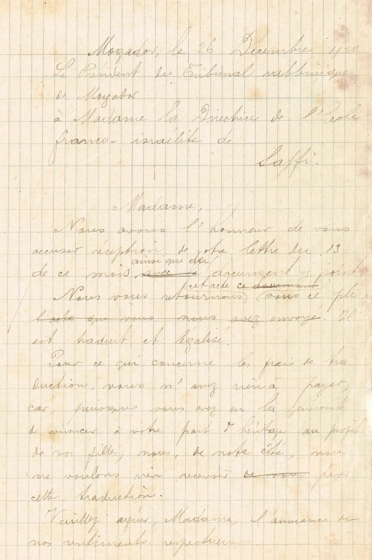 Mogador, le 26 Décembre 1920
Le Président du Tribunal rabbinique
de Mogador
à Madame la Directrice de l'Ecole
franco-israélite de
Saffi.
Madame,
Nous avons l'honneur de vous
accuser réception de votre lettre du 13
de ce mois ainsi que du document y joint
Nous vous retournons cet acte
l'acte que vous nous avez envoyé. Il
est traduit et légalisé.
Pour ce qui concerne les frais de tra
duction, vous n'avez rien à payer,
car, puisque vous avez eu la générosité
de renoncer à votre part d'héritage au profit
de vos filles, nous, de notre côté, nous
ne voulons rien recevoir pour
cette traduction.
Veuillez agréer, Madame, l'assurance de
nos sentiments respectueux